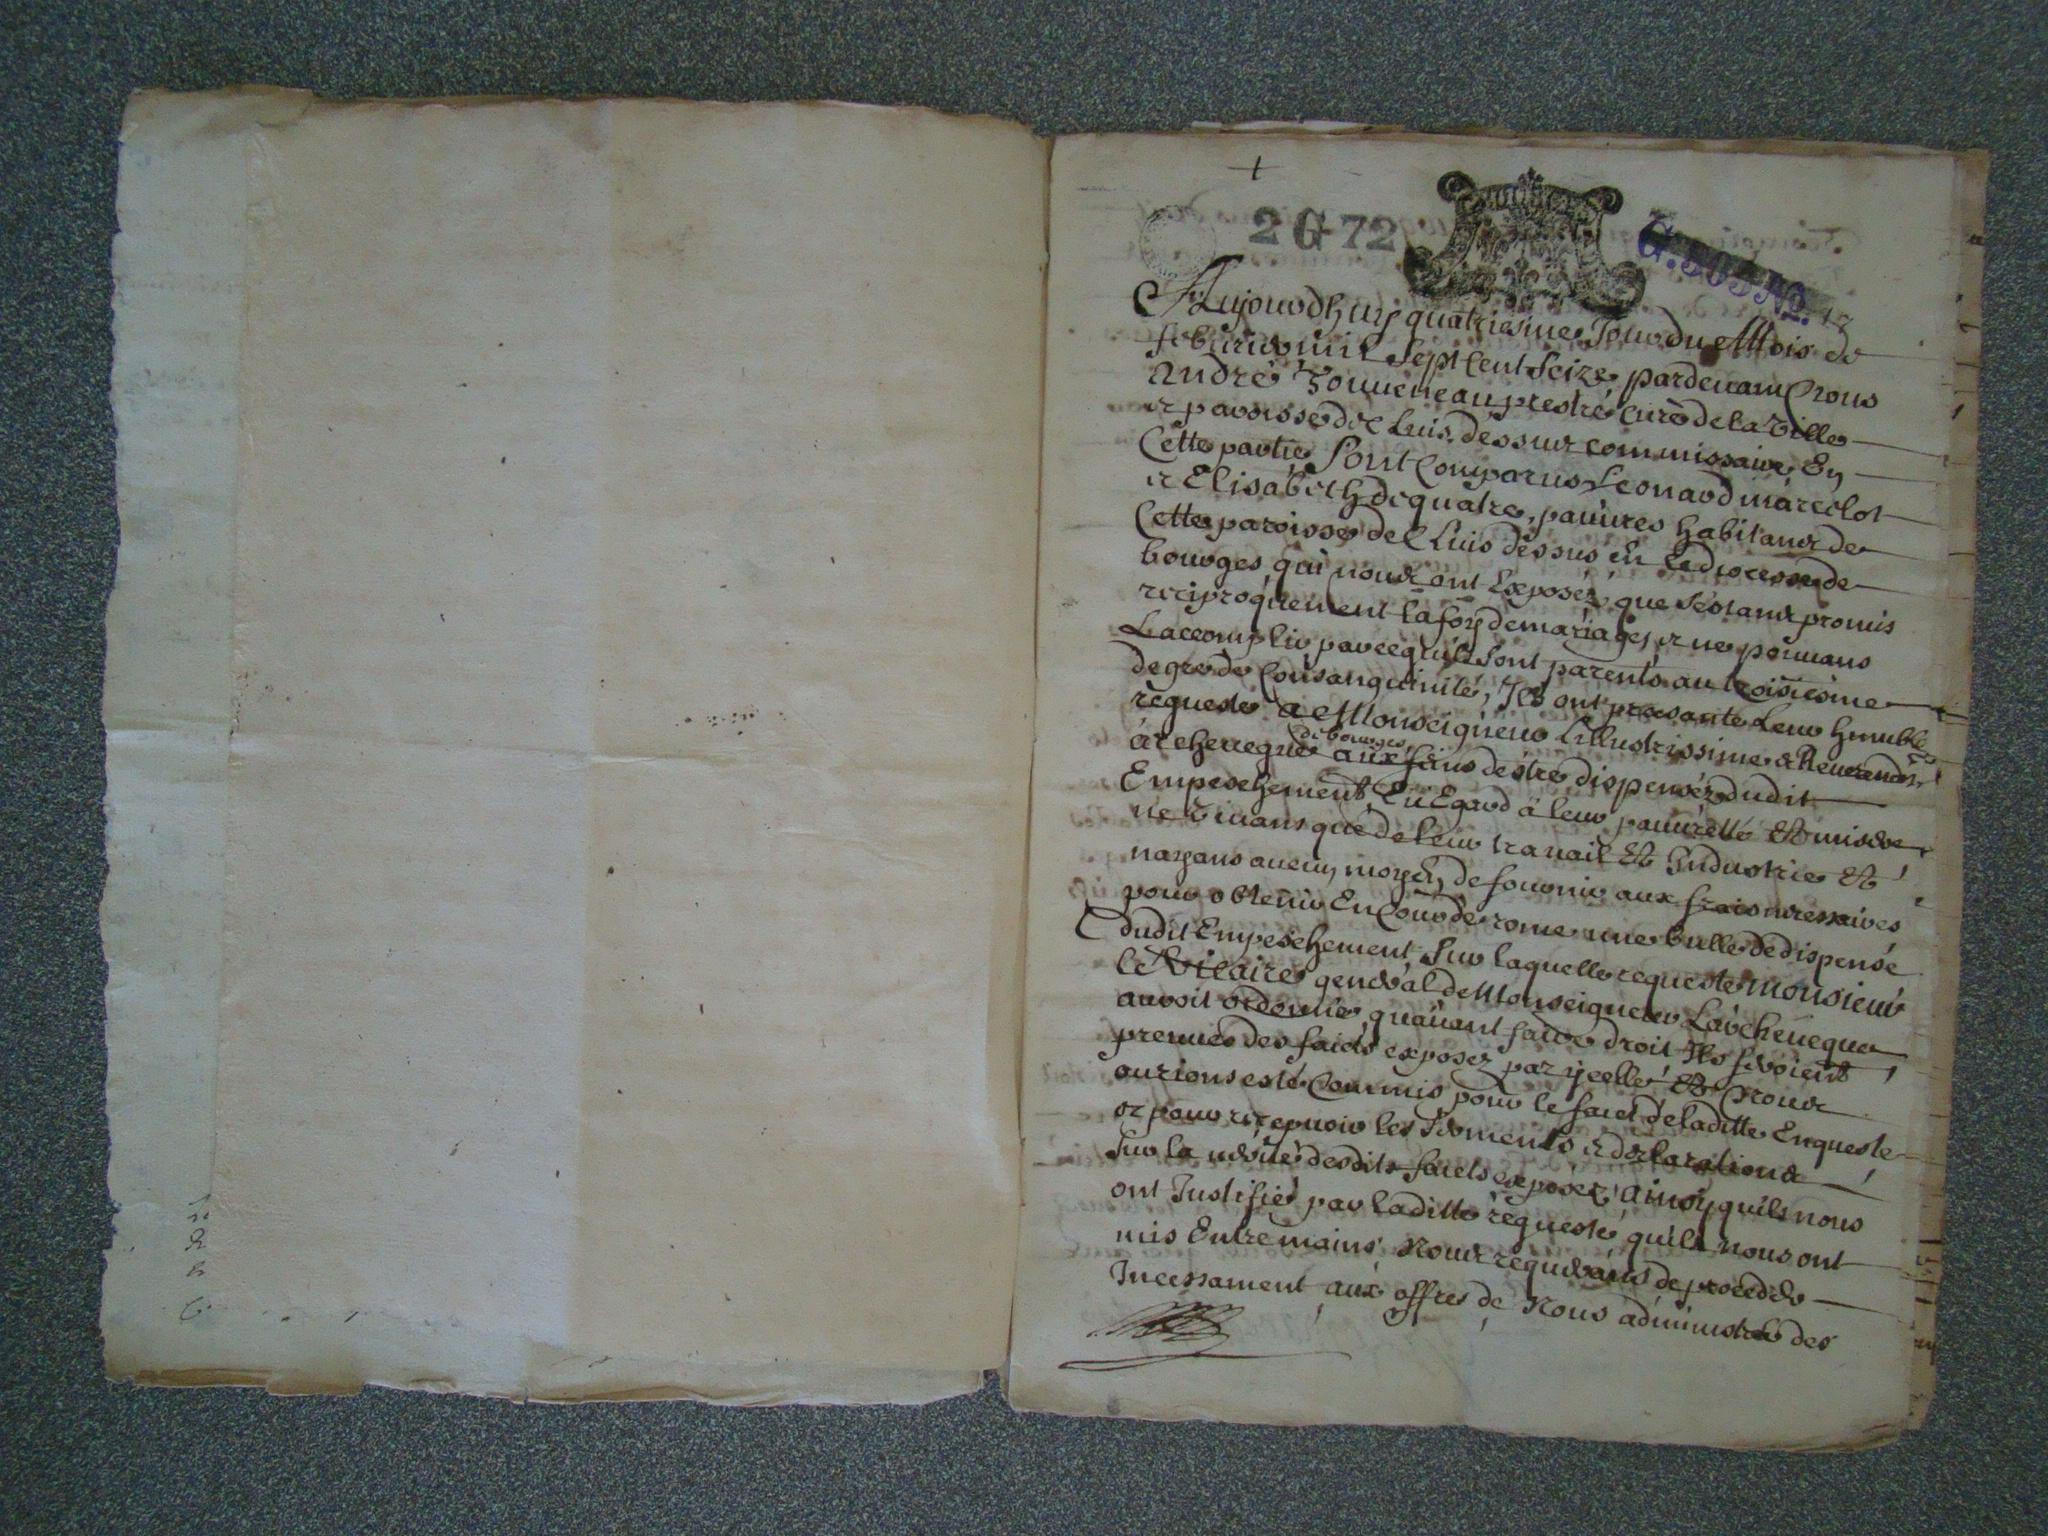 +
2 G 72
G. 505 No. 17
Aujourdhuy quatriesme Jour du Mois de
feburier mil Sept Cent Seize pardevant Nous
André Touveneau prestre curé de la Ville
et paroisse de Cluis dessus commissaire En
Cette partie Sont Comparus Leonard marclot
et Elisabeth de quatre, pauvres habitans de
Cette paroisse de Cluis dessus En Le diocesse de
bourges qui nous ont Exposéz que s'estans promis
reciproquement la foy de mariage, et ne pouuans
L'accomplir parcequ'ils sont parents au troisiesme
degré de Consanguinité, Ils ont presanté Leur humble
requeste a Monseigneur L'illustrissime & Reuerendis.
archeuegue de bourges aux fins destre dispenséz dudit
Empeschement, Eu Egard à leur pauureté & misere
ne viuans que de leur trauail & Industrie &
nayans aucun moyen de fournir aux frais necessaires
pour obtenir En Cour de rome une bulle de dispense
dudit Empeschement Sur laquelle requeste monsieur
le Vicaire general de Monseigneur L'archeueque
auroit ordonné, qu'auant faire droit Ils feroient
preuue des faicts exposez par ycelle & Nous
aurions esté Commis pour le faict de laditte Enqueste
et pour receuoir les Serments et declarations
Sur la verité desdits faicts exposez, ainsy quils nous
ont Justifié par laditte requeste quils nous ont
mis Entre mains Nous requerans de proceder
Incessament aux offres de Nous administrer des